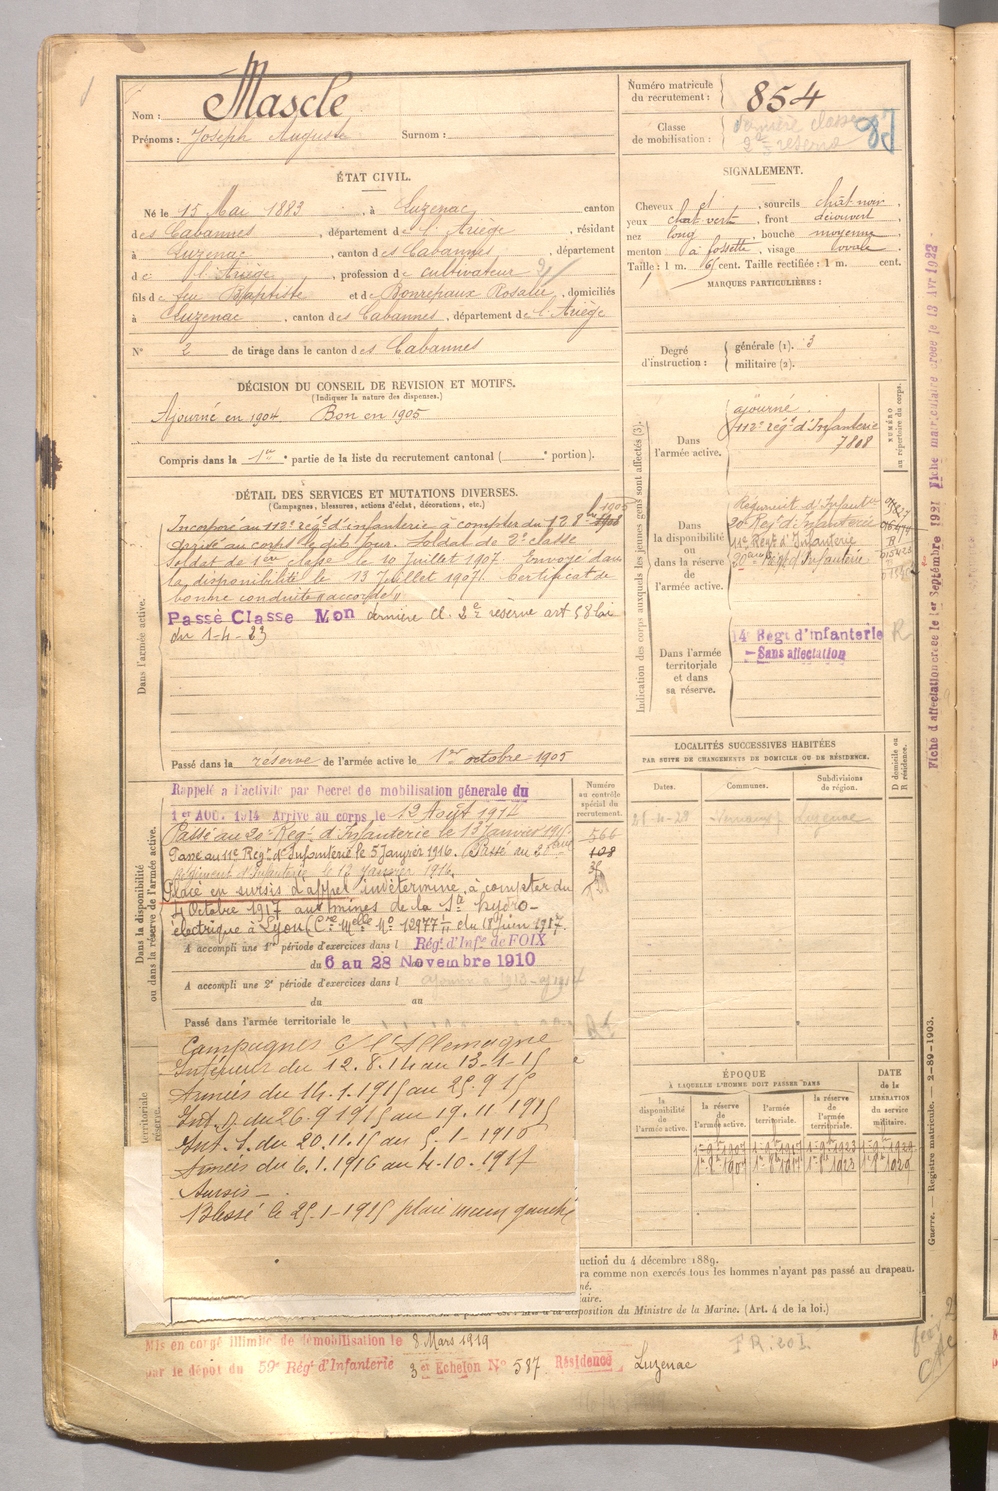 Nom : Mascle
Prénoms : Joseph Auguste Surnom :
Numéro matricule du recrutement : 854
Classe de mobilisation : dernière classe 2e réserve
ÉTAT CIVIL.
Né le 15 Mai 1883, à Luzenac, canton
des Cabannes, département de l'Ariège, résidant
à Luzenac, canton des Cabannes, département
de l'Ariège, profession de cultivateur
fils de feu Baptiste et de Bonrepaux Rosalie, domiciliés
à Luzenac, canton des Cabannes, département de l'Ariège
N° 2 de tirage dans le canton des Cabannes
SIGNALEMENT.
Cheveux et, sourcils chât noir,
yeux chat vert, front découvert,
nez long, bouche moyenne,
menton à fossette, visage ovale.
Taille : 1 m. 65 cent. Taille rectifiée : 1 m. cent.
MARQUES PARTICULIÈRES :
Degré d'instruction : générale (1). 3
militaire (2).
DÉCISION DU CONSEIL DE REVISION ET MOTIFS.
(Indiquer la nature des dispenses.)
Ajourné en 1904. Bon en 1905
Compris dans la 1re partie de la liste du recrutement cantonal ( e portion).
DÉTAIL DES SERVICES ET MUTATIONS DIVERSES.
(Campagnes, blessures, actions d'éclat, décorations, etc.)
Dans l'armée active.
Incorporé au 112e régt d'infanterie à compter du 8bre 1905
Arrivé au corps le dit jour. Soldat de 2e classe
Soldat de 1ère classe le 10 Juillet 1907. Envoyé dans
la disponibilité le 13 Juillet 1907. Certificat de
bonne conduite "accordé"
Passé Classe Mon dernière cl. 2e réserve art 58 loi
du 1-4-23
Passé dans la réserve de l'armée active le 1er octobre 1905
Indication des corps auxquels les jeunes gens sont affectés (3).
NUMÉRO au répertoire du corps.
Dans l'armée active.
ajourné.
112e régt d'Infanterie
7808
Dans la disponibilité ou dans la réserve de l'armée active.
Régiment d'Infanterie
20e Régt d'Infanterie
11e Régt d'Infanterie
20ème Régt d'Infanterie
Dans l'armée territoriale et dans sa réserve.
4e Régt d'Infanterie R
Sans affectation
LOCALITÉS SUCCESSIVES HABITÉES
PAR SUITE DE CHANGEMENTS DE DOMICILE OU DE RÉSIDENCE.
D domicile ou R résidence.
Dates. Communes. Subdivisions de région.
Luzenac
Dans la disponibilité ou dans la réserve de l'armée active.
Numéro au contrôle spécial du recrutement.
566
108
Rappelé à l'activité par Décret de mobilisation générale du
1er AOU. 1914 Arrivé au corps le 12 Août 1914
Passé au 20e Régt d'Infanterie le 13 Janvier 1915
Passé au 11e Régt d'Infanterie le 5 Janvier 1916. Passé au 20ème
Régiment d'Infanterie le 12 Janvier 1916.
Placé en sursis d'appel indéterminé, à compter du
4 Octobre 1917 aux mines de la Sté hydro-
électrique à Lyon (Cre Melle No 12977 du 18 Juin 1917.
A accompli une 1re période d'exercices dans l Régt d'Infie de FOIX
du 6 au 28 Novembre 1910
A accompli une 2e période d'exercices dans l
du au
Passé dans l'armée territoriale le
Campagnes c/ l'Allemagne
Intérieur du 12.8.14 au 13-1-15
Armées du 14.1.1915 au 25.9 15
Int. B du 26.9 1915 au 19.11 1915
Int. S. du 20.11.15 au 5-1-1916
Armées du 6.1.1916 au 4.10.1917
Sursis —
Blessé le 25-1-1915 plaie main gauche
territoriale
réserve.
ÉPOQUE
À LAQUELLE L'HOMME DOIT PASSER DANS
DATE de la LIBÉRATION du service militaire.
la disponibilité de l'armée active.
la réserve de l'armée active.
l'armée territoriale.
la réserve de l'armée territoriale.
uction du 4 décembre 1889.
ra comme non exercés tous les hommes n'ayant pas passé au drapeau.
né.
aire.
disposition du Ministre de la Marine. (Art. 4 de la loi.)
Mis en congé illimité de démobilisation le 8 Mars 1919
par le dépôt du 59e Régt d'Infanterie 3er Echelon N° 587 Résidence Luzenac
Fiche d'affectation créée le 1er Septembre 1921 Fiche matriculaire créée le 13 Avr 1922
Guerre. — Registre matricule. — 2-89-1903.